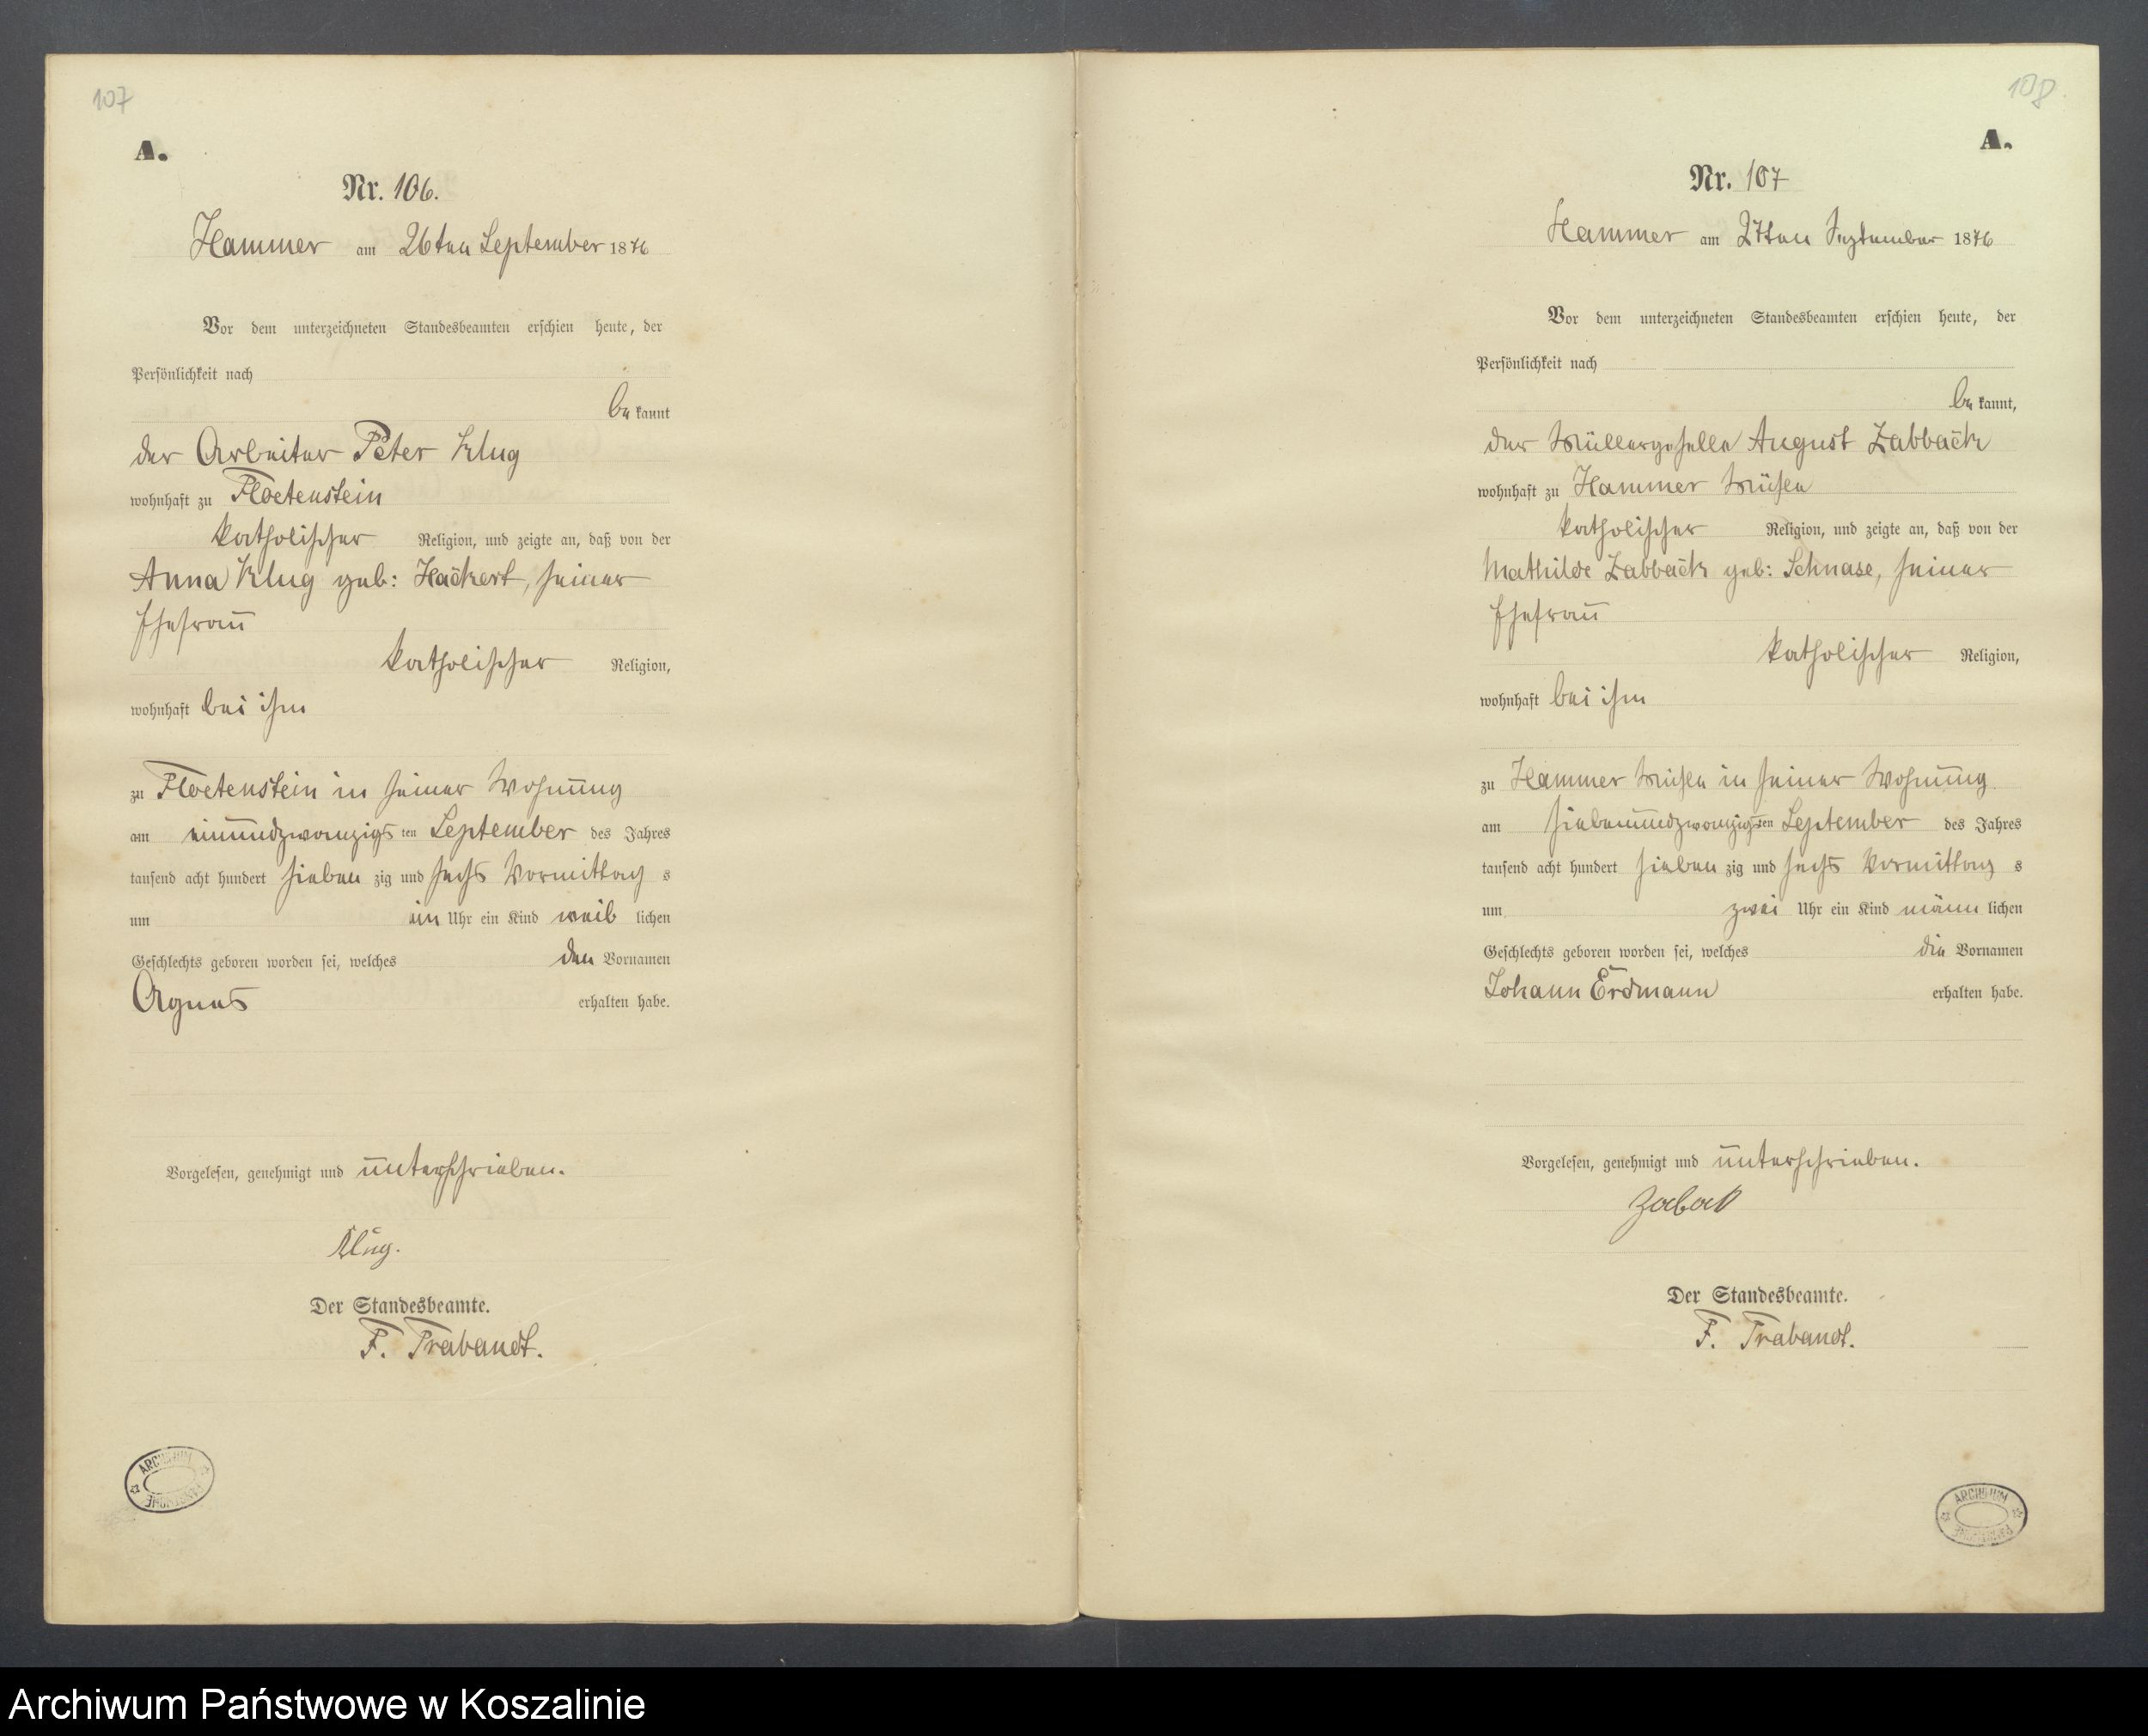 107
A.
Nr. 106.
Hammer am 26ten September 1876
Vor dem unterzeichneten Standesbeamten erschien heute, der
Persönlichkeit nach
be kannt
der Arbeiter Peter Klug
wohnhaft zu Floetenstein
katholischer Religion, und zeigte an, daß von der
Anna Klug geb: Hackert, seiner
Ehefrau
katholischer Religion,
wohnhaft bei ihm
zu Floetenstein in seiner Wohnung
am einundzwanzigs ten September des Jahres
tausend acht hundert sieben zig und sechs Vormittag s
um ein Uhr ein Kind weib lichen
Geschlechts geboren worden sei, welches den Vornamen
Agnes erhalten habe.
Vorgelesen, genehmigt und unterschrieben.
Klug.
Der Standesbeamte.
F. Trabandt.
ARCHIWUM PAŃSTWOWE
108
A.
Nr. 107
Hammer am 27ten September 1876
Vor dem unterzeichneten Standesbeamten erschien heute, der
Persönlichkeit nach
be kannt,
der Müllergeselle August Zabback
wohnhaft zu Hammer Mühle
katholischer Religion, und zeigte an, daß von der
Mathilde Zabback geb: Schnase, seiner
Ehefrau
katholischer Religion,
wohnhaft bei ihm
zu Hammer Mühle in seiner Wohnung
am siebenundzwanzigsten September des Jahres
tausend acht hundert sieben zig und sechs Vormittag s
um zwei Uhr ein Kind männ lichen
Geschlechts geboren worden sei, welches die Vornamen
Johann Erdmann erhalten habe.
Vorgelesen, genehmigt und unterschrieben.
Zabak
Der Standesbeamte.
F. Trabandt.
ARCHIWUM PAŃSTWOWE
Archiwum Państwowe w Koszalinie